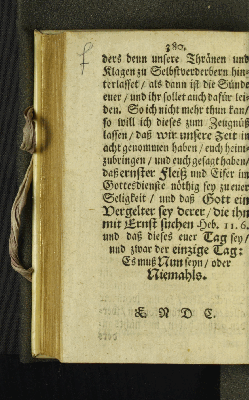 380.
ders denn unsere Thränen und
Klagen zu Selbstverderbern hin-
terlasset / als dann ist die Sünde
euer / und ihr sollet auch dafür lei-
den. So ich nicht mehr thun kan /
so will ich dieses zum Zeugnüß
lassen / daß wir unsere Zeit in
acht genommen haben / euch heim-
zubringen / und euch gesagt haben /
daß ernster Fleiß und Eifer im
Gottesdienste nöthig sey zu euer
Seligkeit / und daß Gott ein
Vergelter sey derer / die ihn
mit Ernst suchen Heb. 11. 6.
und daß dieses euer Tag sey /
und zwar der einzige Tag:
Es muß Nun seyn / oder
Niemahls.
E N D E.